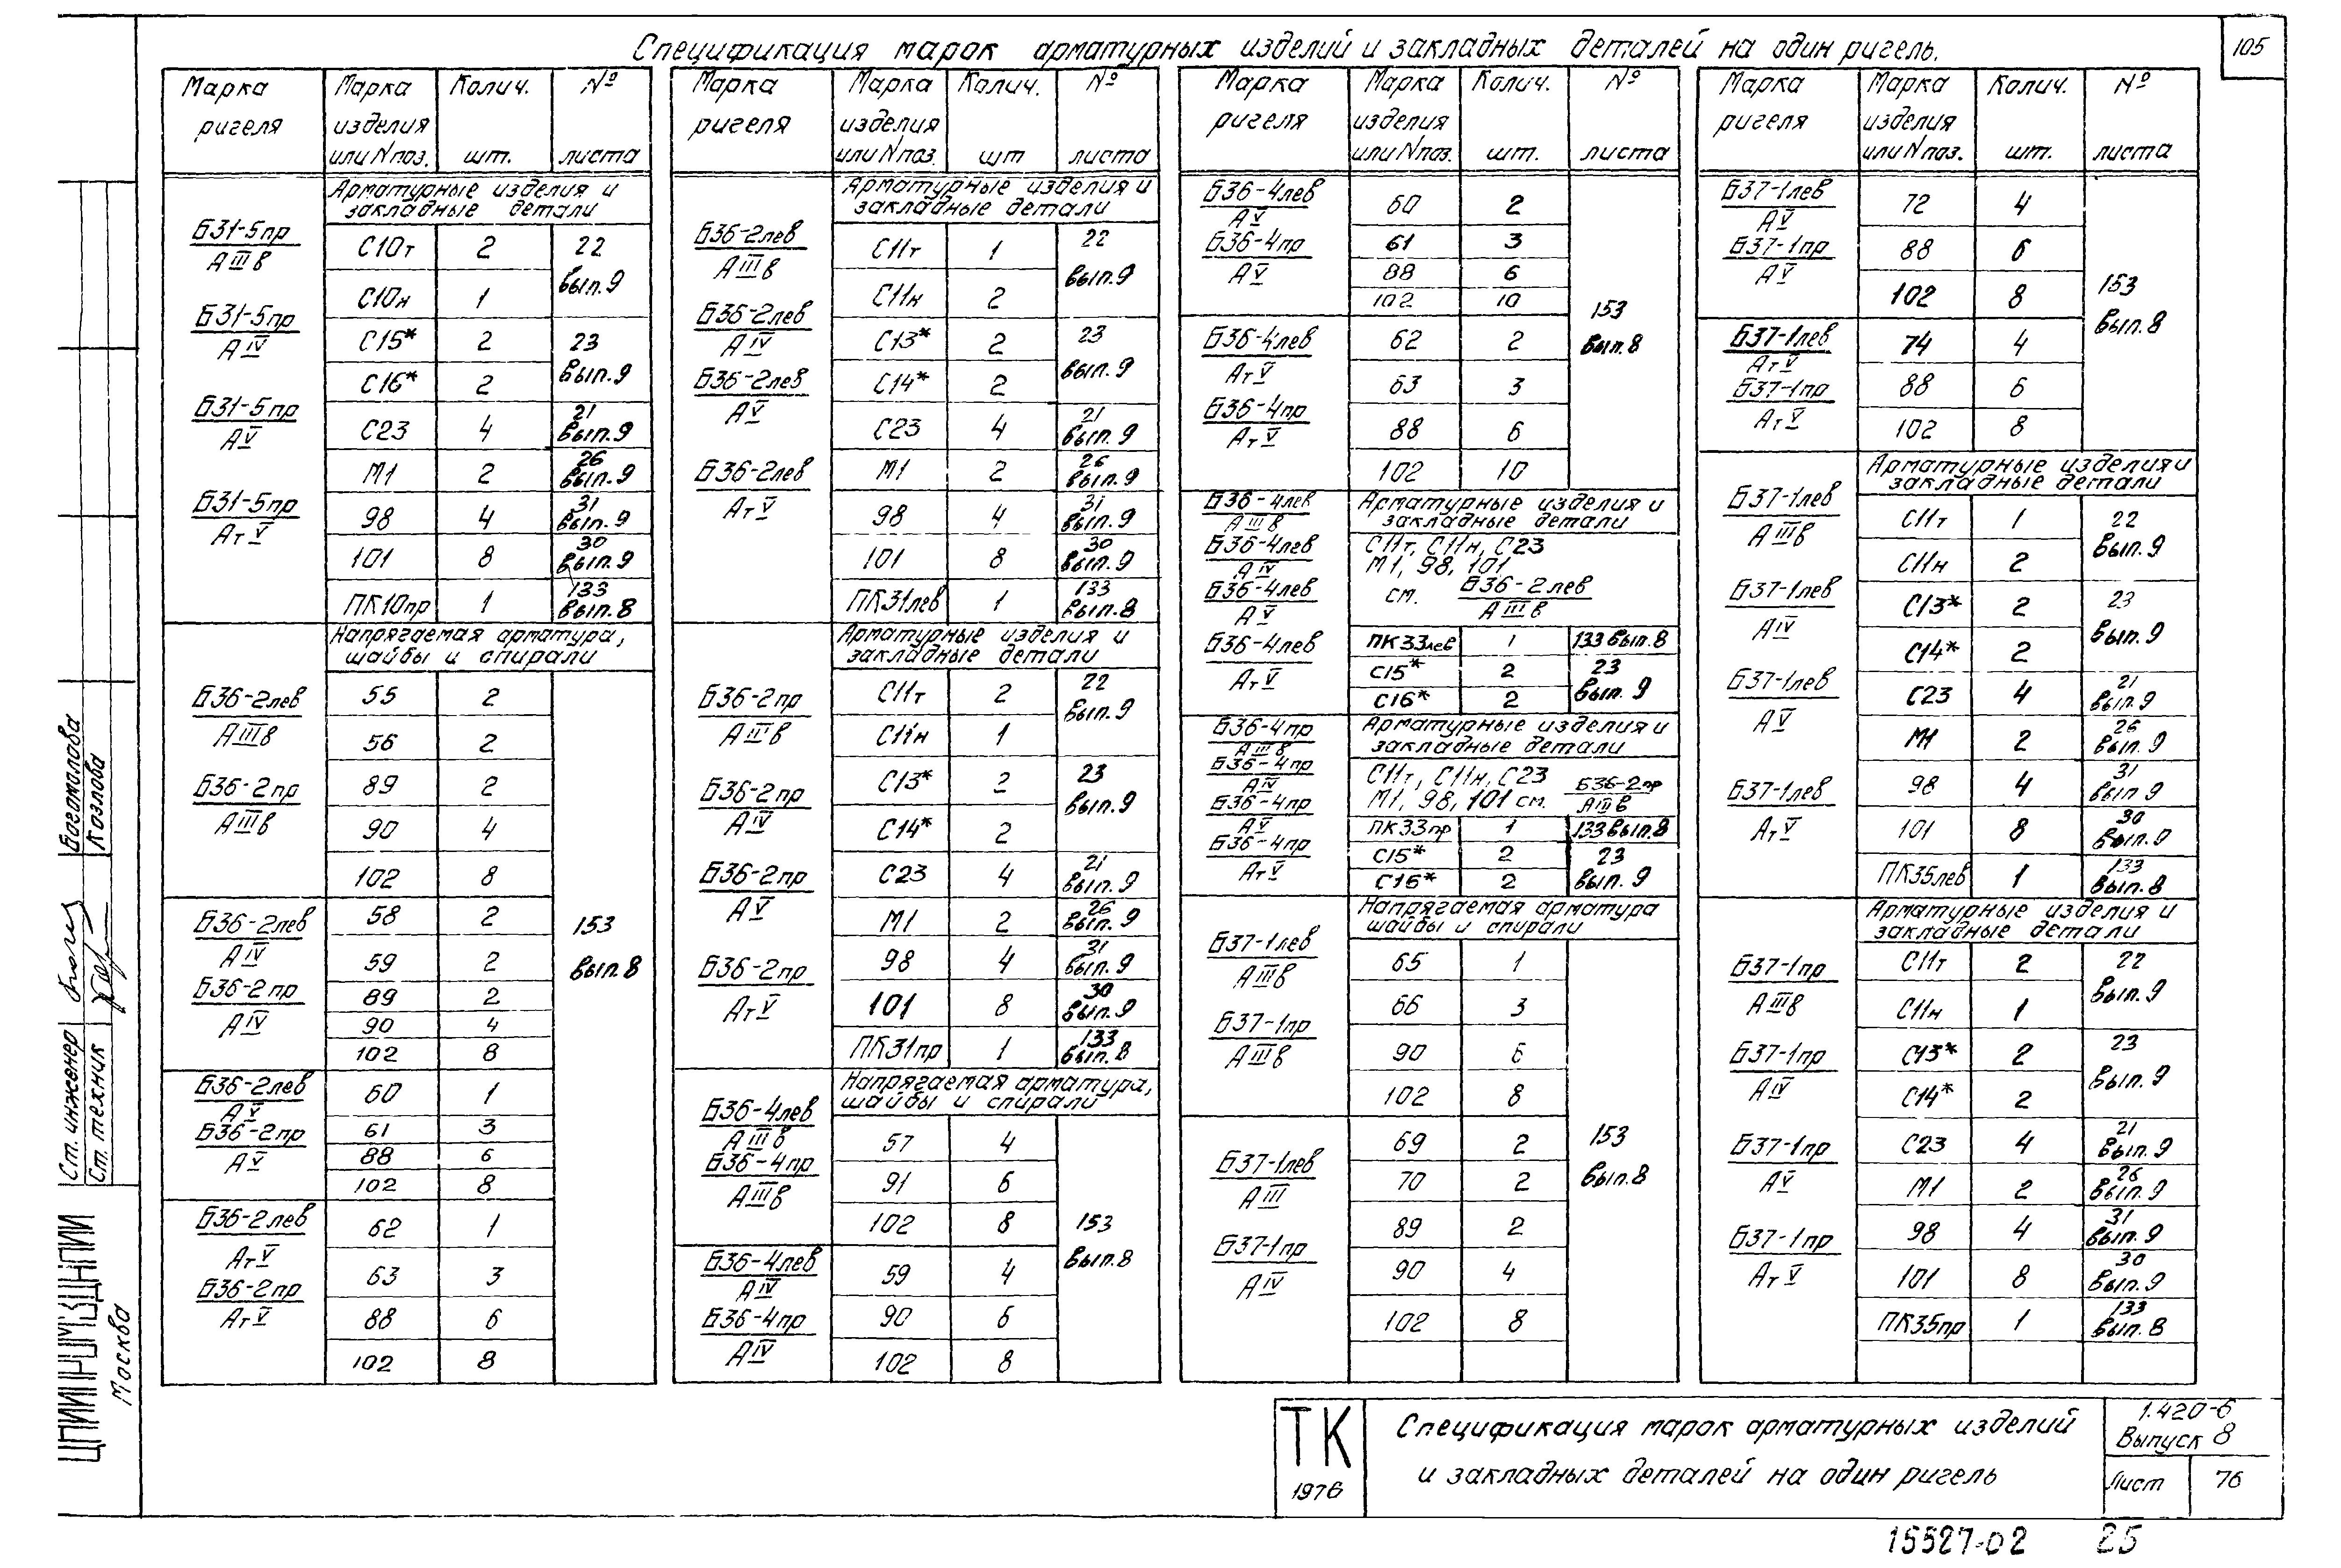 105
Спецификация марок арматурных изделий и закладных деталей на один ригель.
Марка ригеля | Марка изделия или N поз. | Колич. шт. | № листа
Арматурные изделия и закладные детали
Б31-5пр АIIIв
Б31-5пр АIV
Б31-5пр АV
Б31-5пр АтV
С10т 2 22 вып.9
С10н 1
С15* 2 23 вып.9
С16* 2
С23 4 21 вып.9
М1 2 26 вып.9
98 4 31 вып.9
101 8 30 вып.9
ПК10пр 1 133 вып.8
Напрягаемая арматура, шайбы и спирали
Б36-2лев АIIIв
Б36-2пр АIIIв
55 2
56 2
89 2
90 4
102 8
153 вып.8
Б36-2лев АIV
Б36-2пр АIV
58 2
59 2
89 2
90 4
102 8
Б36-2лев АV
Б36-2пр АV
60 1
61 3
88 6
102 8
Б36-2лев АтV
Б36-2пр АтV
62 1
63 3
88 6
102 8
Марка ригеля | Марка изделия или N поз. | Колич. шт | № листа
Арматурные изделия и закладные детали
Б36-2лев АIIIв
Б36-2лев АIV
Б36-2лев АV
Б36-2лев АтV
С11т 1 22 вып.9
С11н 2
С13* 2 23 вып.9
С14* 2
С23 4 21 вып.9
М1 2 26 вып.9
98 4 31 вып.9
101 8 30 вып.9
ПК31лев 1 133 вып.8
Арматурные изделия и закладные детали
Б36-2пр АIIIв
Б36-2пр АIV
Б36-2пр АV
Б36-2пр АтV
С11т 2 22 вып.9
С11н 1
С13* 2 23 вып.9
С14* 2
С23 4 21 вып.9
М1 2 26 вып.9
98 4 31 вып.9
101 8 30 вып.9
ПК31пр 1 133 вып.8
Напрягаемая арматура, шайбы и спирали
Б36-4лев АIIIв
Б36-4пр АIIIв
57 4
91 6
102 8
153 вып.8
Б36-4лев АIV
Б36-4пр АIV
59 4
90 6
102 8
Марка ригеля | Марка изделия или N поз. | Колич. шт. | № листа
Б36-4лев АV
Б36-4пр АV
60 2
61 3
88 6
102 10
153 вып.8
Б36-4лев АтV
Б36-4пр АтV
62 2
63 3
88 6
102 10
Арматурные изделия и закладные детали
Б36-4лев АIIIв
Б36-4лев АIV
Б36-4лев АV
Б36-4лев АтV
С11т, С11н, С23
М1, 98, 101
см. Б36-2лев АIIIв
ПК33лев 1 133 вып.8
С15* 2 23 вып.9
С16* 2
Арматурные изделия и закладные детали
Б36-4пр АIIIв
Б36-4пр АIV
Б36-4пр АV
Б36-4пр АтV
С11т, С11н, С23
М1, 98, 101 см. Б36-2пр АIIIв
ПК33пр 1 133 вып.8
С15* 2 23 вып.9
С16* 2
Напрягаемая арматура шайбы и спирали
Б37-1лев АIIIв
Б37-1пр АIIIв
65 1
66 3
90 6
102 8
153 вып.8
Б37-1лев АIII
Б37-1пр АIV
69 2
70 2
89 2
90 4
102 8
Марка ригеля | Марка изделия или N поз. | Колич. шт. | № листа
Б37-1лев АV
Б37-1пр АV
72 4
88 6
102 8
153 вып.8
Б37-1лев АтV
Б37-1пр АтV
74 4
88 6
102 8
Арматурные изделия и закладные детали
Б37-1лев АIIIв
Б37-1лев АIV
Б37-1лев АV
Б37-1лев АтV
С11т 1 22 вып.9
С11н 2
С13* 2 23 вып.9
С14* 2
С23 4 21 вып.9
М1 2 26 вып.9
98 4 31 вып 9
101 8 30 вып.9
ПК35лев 1 133 вып.8
Арматурные изделия и закладные детали
Б37-1пр АIIIв
Б37-1пр АIV
Б37-1пр АV
Б37-1пр АтV
С11т 2 22 вып.9
С11н 1
С13* 2 23 вып.9
С14* 2
С23 4 21 вып.9
М1 2 26 вып.9
98 4 31 вып.9
101 8 30 вып.9
ПК35пр 1 133 вып.8
Богомолова
Козлова
Ст. инженер
Ст. техник
Москва
ТК
1976
Спецификация марок арматурных изделий
и закладных деталей на один ригель
1.420-6
Выпуск 8
Лист 76
15527-02 25